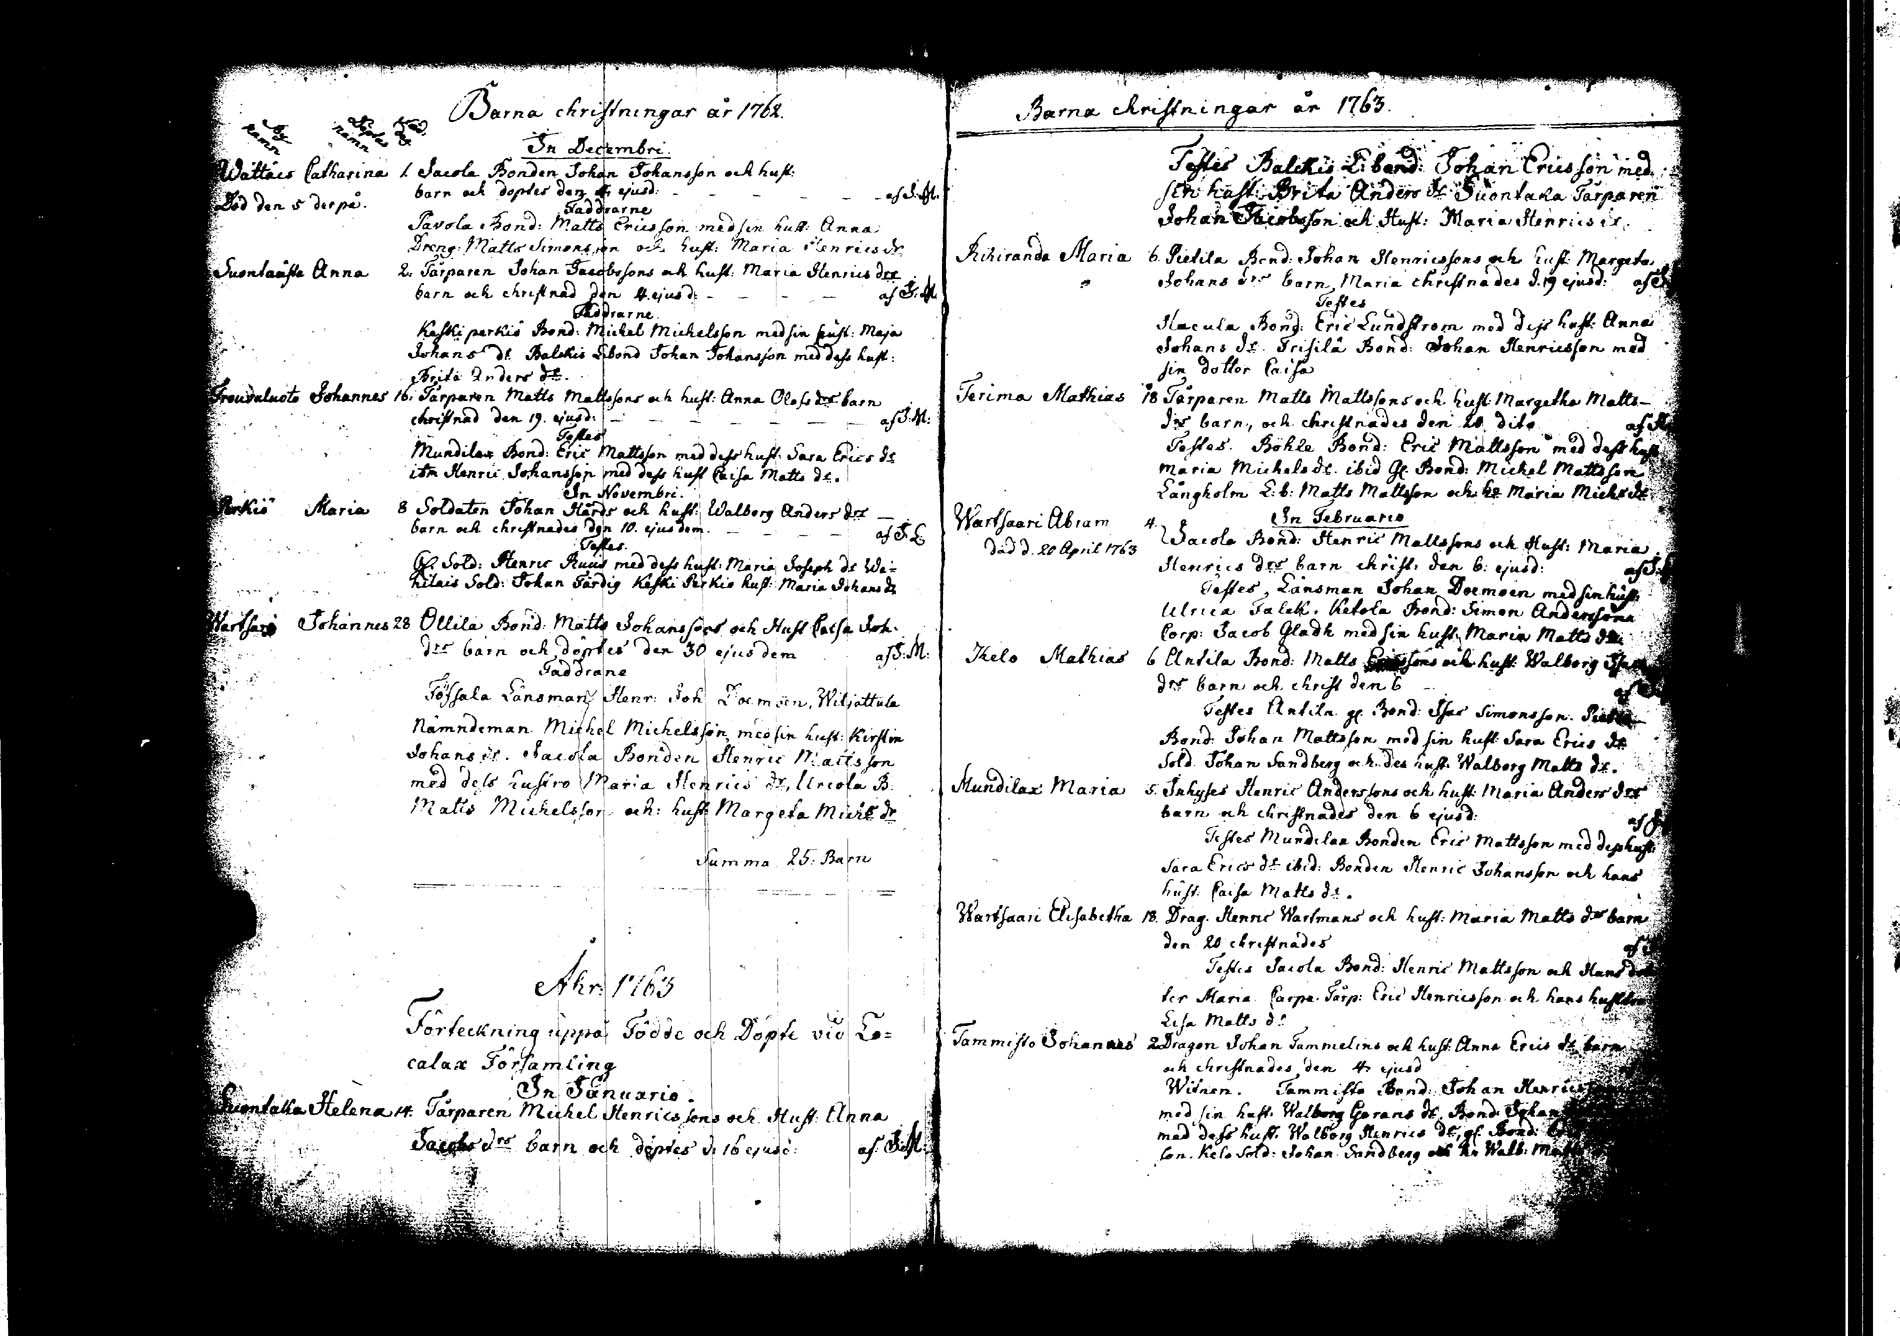 Barna christningar år 1762.
By namn Döptes namn Född. dag
In Decembri.
Wattaes Catharina 1. Jacola Bonden Johan Johansson och hust:
barn och döptes den 4 ejusd: af J:M:
Död den 5 derpå.
Faddrarne
Pavola Bond: Matts Ericsson med sin hust: Anna
Dreng: Matts Simonsson och hust: Maria Henrics dr
Suontausta Anna 2. Tårparen Johan Jacobssons och hust: Maria Henrics drs
barn och christnad den 4. ejusd: af J:M
Faddrarne
Keskiperkiö Bond: Michel Michelsson med sin hust: Maja
Johans dr Balskis L:bond Johan Johansson med dess hust:
Brita Anders dr.
Johannes 16. Tårparen Matts Mattssons och hust: Anna Olofs drs barn
christnad den 19. ejusd: af J:M:
Testes
Mundilax Bond: Eric Mattsson med dess hust: Sara Erics dr
itm Henric Johansson med dess hust Caisa Matts dr.
In Novembri.
Perkiö Maria 8 Soldaten Johan Hårds och hust: Walborg Anders drs
barn och christnades den 10. ejusdem. af J.L
Testes.
Sold: Henric Ruus med dess hust: Maria Joseph dr We-
hilais Sold: Johan Färdig Keski Perkiö hust: Maria Johans dr
Wartsari Johannes 28 Ollila Bond: Matts Johanssons och Hust Caisa Joh.
drs barn och döptes den 30 ejusdem af J:M:
Faddrane
Tössala Länsman Henr: Joh Doemoen, Wiljattula
Nämndeman Michel Michelsson med sin hust: Kirstin
Johans dr. Jacola Bonden Henric Mattsson
med dess hustro Maria Henrics dr, Urcola B.
Matts Michelsson och: hust: Margeta Michs dr
Summa 25: Barn
Åhr: 1763
Förteckning uppå Födde och Döpte vid Lo=
calax Församling
In Januario.
Suontaka Helena 14. Tårparen Michel Henricssons och Hust: Anna
Jacobs drs barn och döptes d. 16 ejusd: af J:M:
Barna christningar år 1763.
Testes Balskis L:bond: Johan Ericsson med
sin hust: Brita Anders dr Suontaka Tårparen
Johan Jacobsson och Hust: Maria Henrics dr.
Rihiranda Maria 6. Pietila Bond: Johan Henricssons och hust: Margeta
Johans drs barn Maria christnades d. 19 ejusd: af
Testes
Hacula Bond: Eric Lundström med dess hust: Anna
Johans dr. Frisilä Bond: Johan Henricsson med
sin dotter Caisa
Terima Mathias 18 Tårparen Matts Mattssons och hust: Margetha Matts-
drs barn, och christnades den 20 dito af
Testes. Böhle Bond: Eric Mattsson med dess hust
Maria Michels dr. ibid gl. Bond: Michel Mattsson
Långholm L:b: Matts Mattsson och hr Maria Michs dr
In Februario
Wartsaari Abram 4. Jacola Bond: Henric Mattssons och Hust: Maria
död d. 20 April 1763
Henrics drs barn christ: den 6. ejusd: af J:
Testes, Länsman Johan Doemoen med sin hust:
Ulrica Falck. Ketola Bond: Simon Anderssons
Corp: Jacob Gladh med sin hust, Maria Matts dr.
Kelo Mathias 6 Antila Bond: Matts Ericssons och hust: Walborg
drs barn och christ den 6 af
Testes Antila gl. Bond: Isac Simonsson.
Bond: Johan Mattsson med sin hust: Sara Erics dr
Sold. Johan Sandberg och des hust: Walborg Matts dr.
Mundilax Maria 5. Inhyses Henric Anderssons och hust: Maria Anders drs
barn och christnades den 6 ejusd: af J
Testes Mundilax Bonden Eric Mattsson med dess hust:
Sara Erics dr ibid: Bonden Henric Johansson och hans
hust: Caisa Matts dr.
Wartsaari Elisabetha 18. Drag. Henric Wartmans och hust: Maria Matts drs barn
den 20 christnades af
Testes Jacola Bond: Henric Mattsson och Hans dot
ter Maria. Carpa Tårp: Eric Henricsson och hans hustro
Lisa Matts dr
Tammisto Johannes 2 Dragon Johan Tammelins och hust: Anna Erics dr barn
och christnades den 4 ejusd
Witnen. Tammisto Bond: Johan Henrics
med sin hust: Walborg Görans dr, Bond: Johan
med dess hust: Walborg Henrics dr, gl. Bond:
son. Kelo Sold: Johan Sandberg och hr Walb: Matts